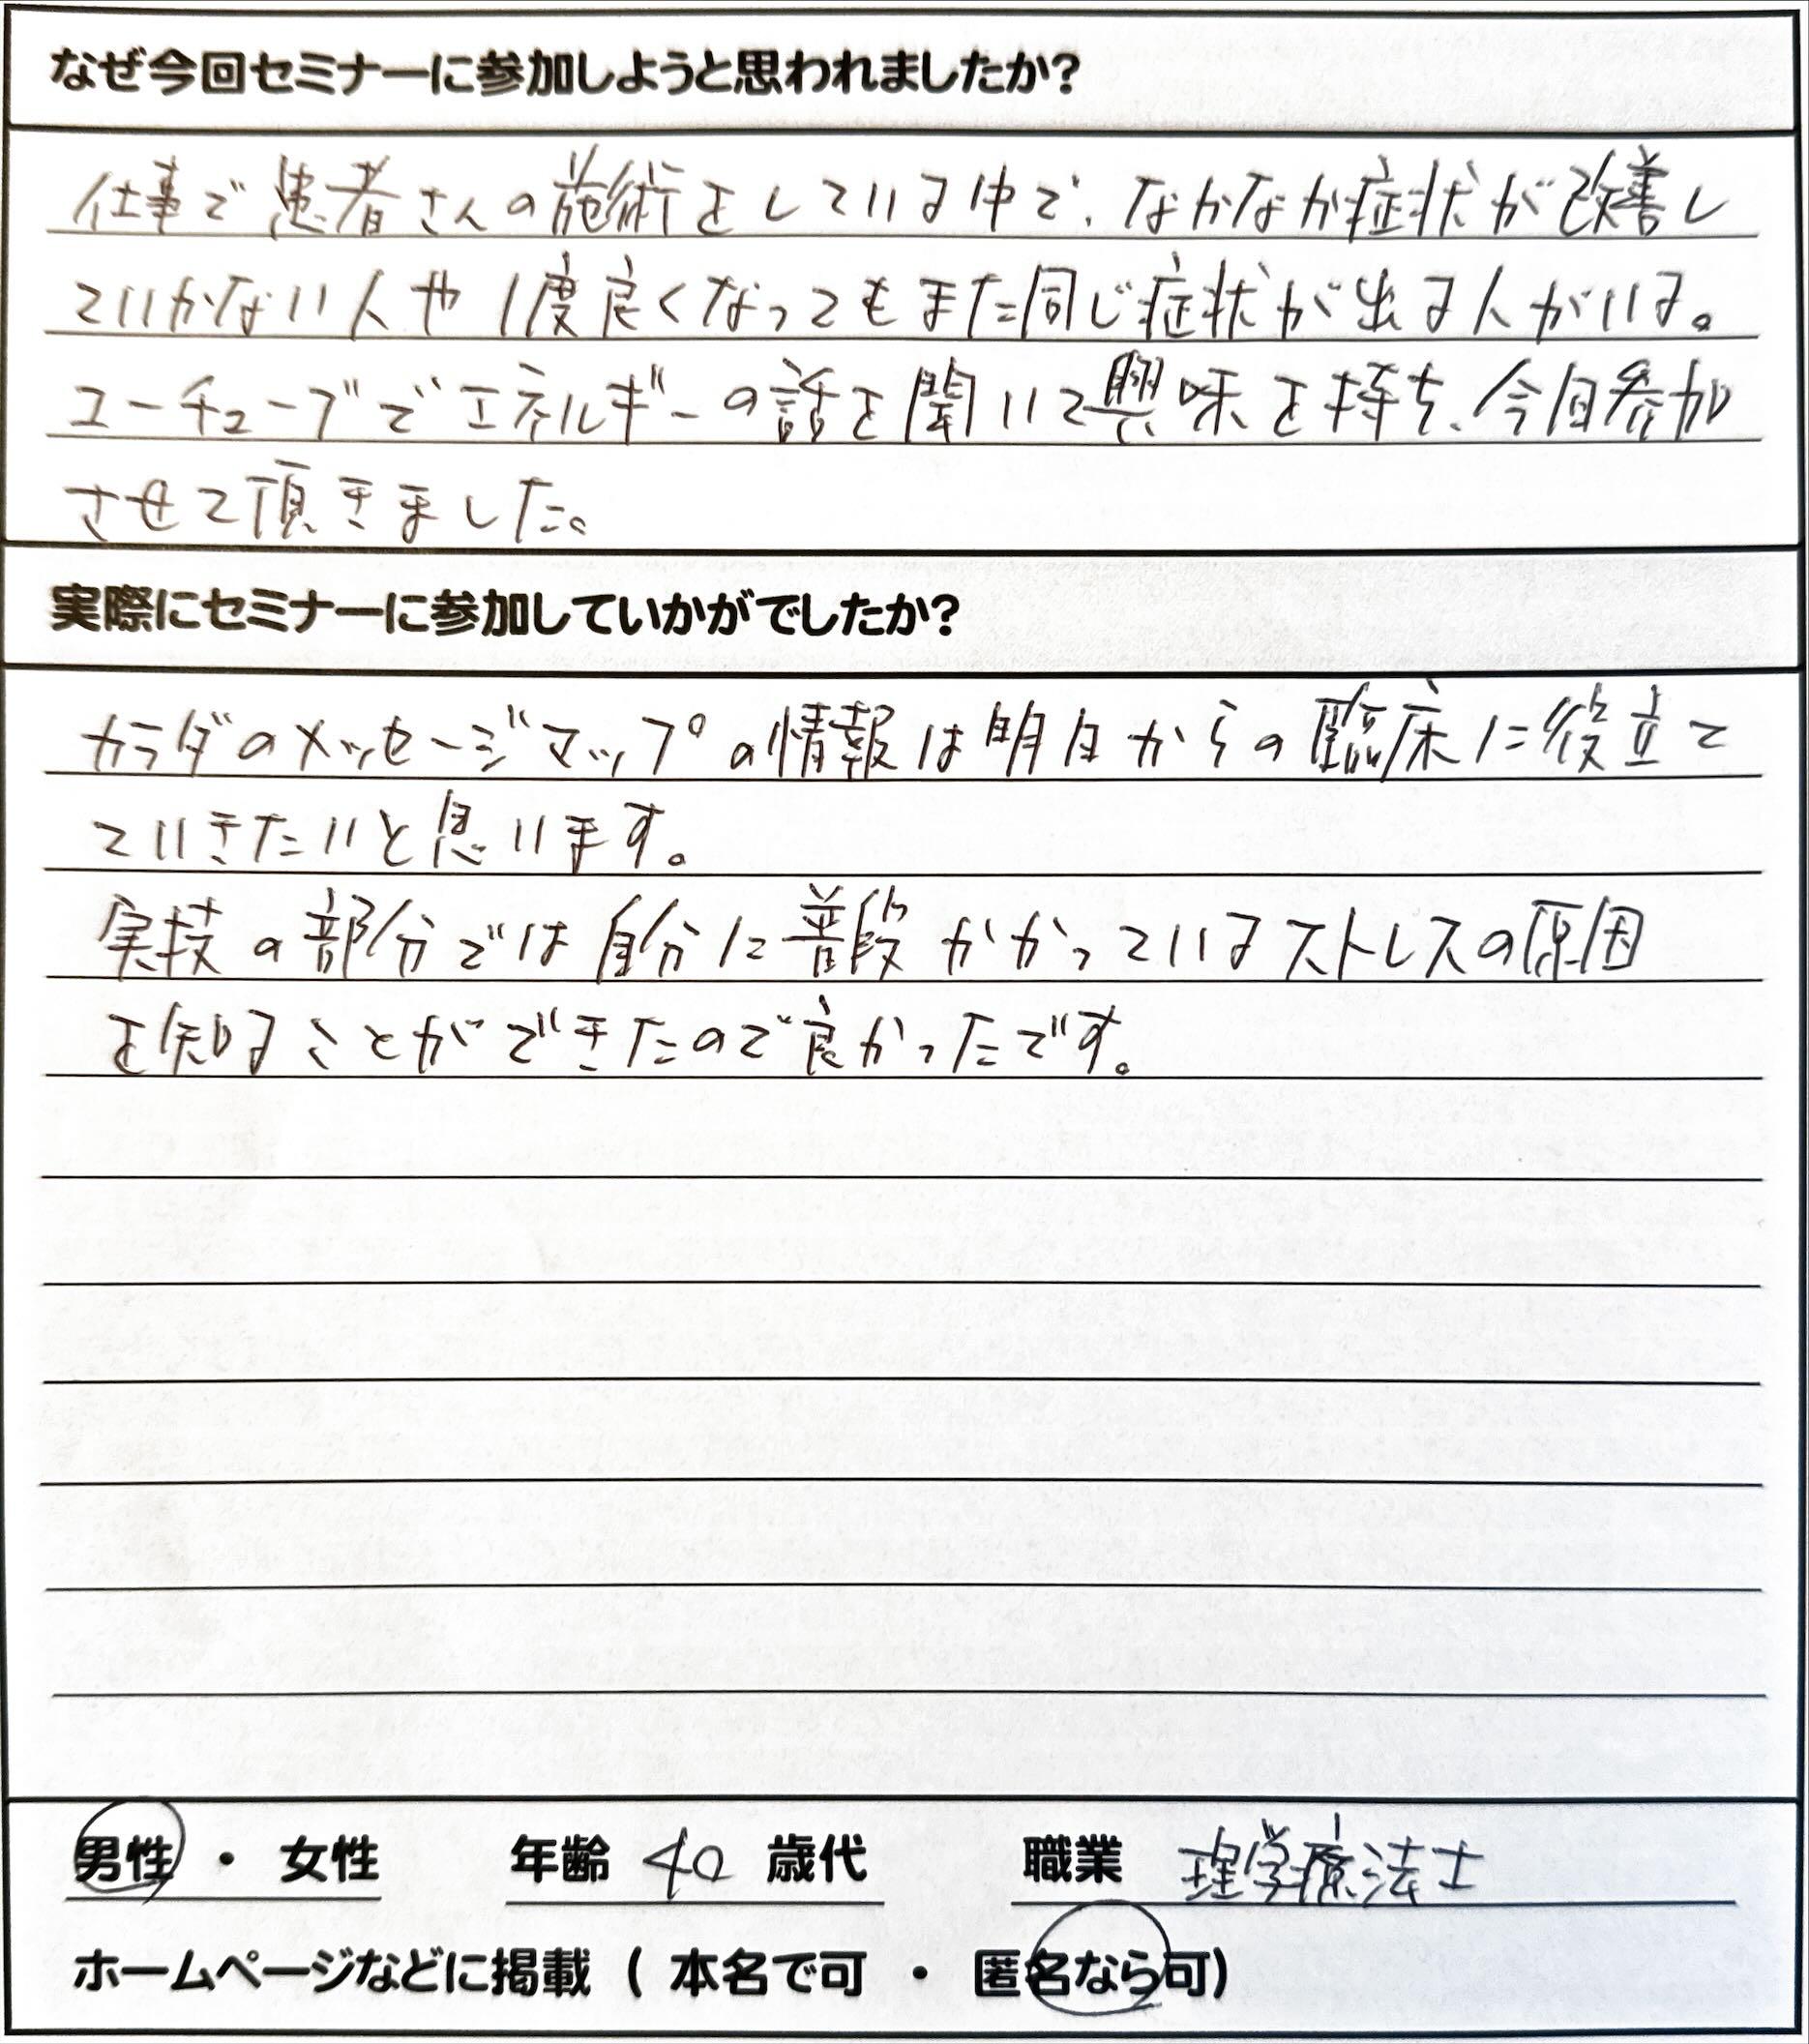 なぜ今回セミナーに参加しようと思われましたか?
仕事で患者さんの施術をしている中で、なかなか症状が改善し
ていかない人や1度良くなってもまた同じ症状が出る人がいる。
ユーチューブでエネルギーの話を聞いて興味を持ち、今回参加
させて頂きました。
実際にセミナーに参加していかがでしたか?
カラダのメッセージマップの情報は明日からの臨床に役立て
ていきたいと思います。
実技の部分では自分に普段かかっているストレスの原因
を知ることができたので良かったです。
男性 ・ 女性 年齢 40 歳代 職業 理学療法士
ホームページなどに掲載 ( 本名で可 ・ 匿名なら可)